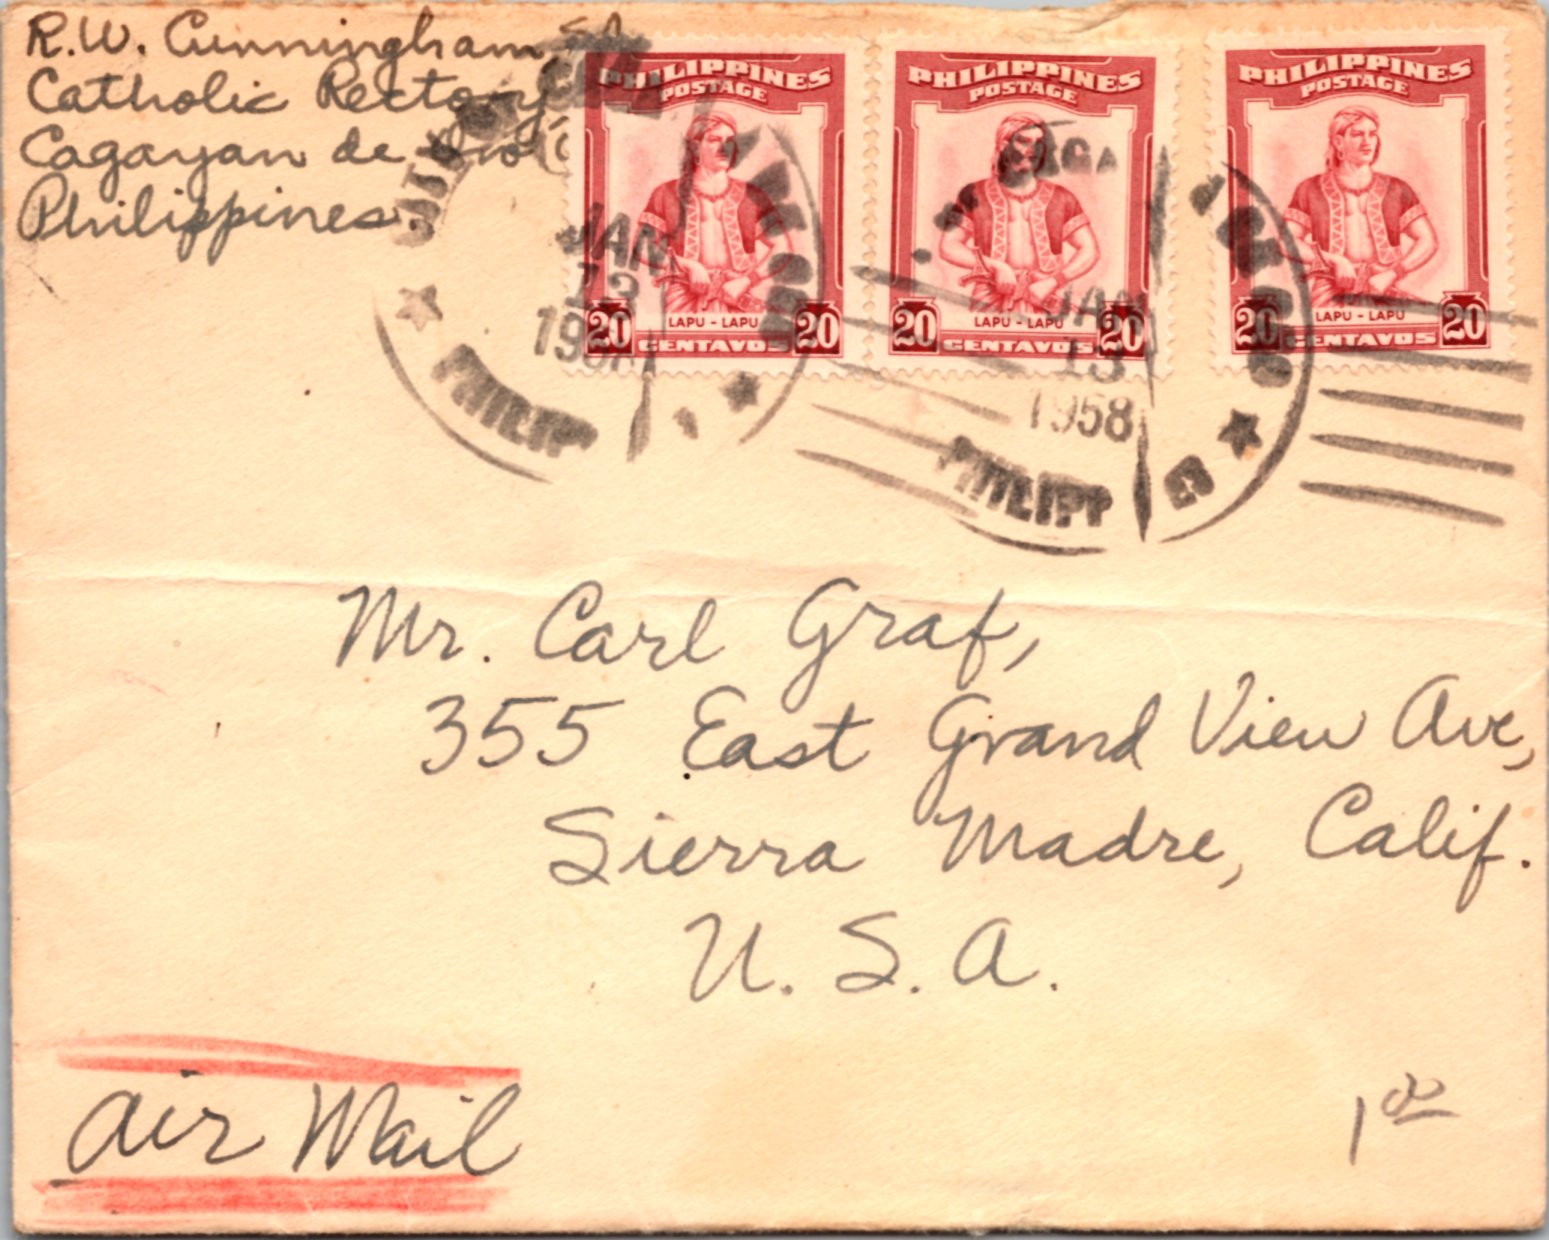 R.W. Cunningham SJ
Catholic Rectory
Cagayan de Oro
Philippines.
PHILIPPINES
POSTAGE
LAPU - LAPU
20 20
CENTAVOS
PHILIPPINES
POSTAGE
LAPU - LAPU
20 20
CENTAVOS
PHILIPPINES
POSTAGE
LAPU - LAPU
20 20
CENTAVOS
JAN
13
PHILIPP
JAN
13
1958
PHILIPP
Mr. Carl Graf,
355 East Grand View Ave,
Sierra Madre, Calif.
U.S.A.
Air Mail
1 00